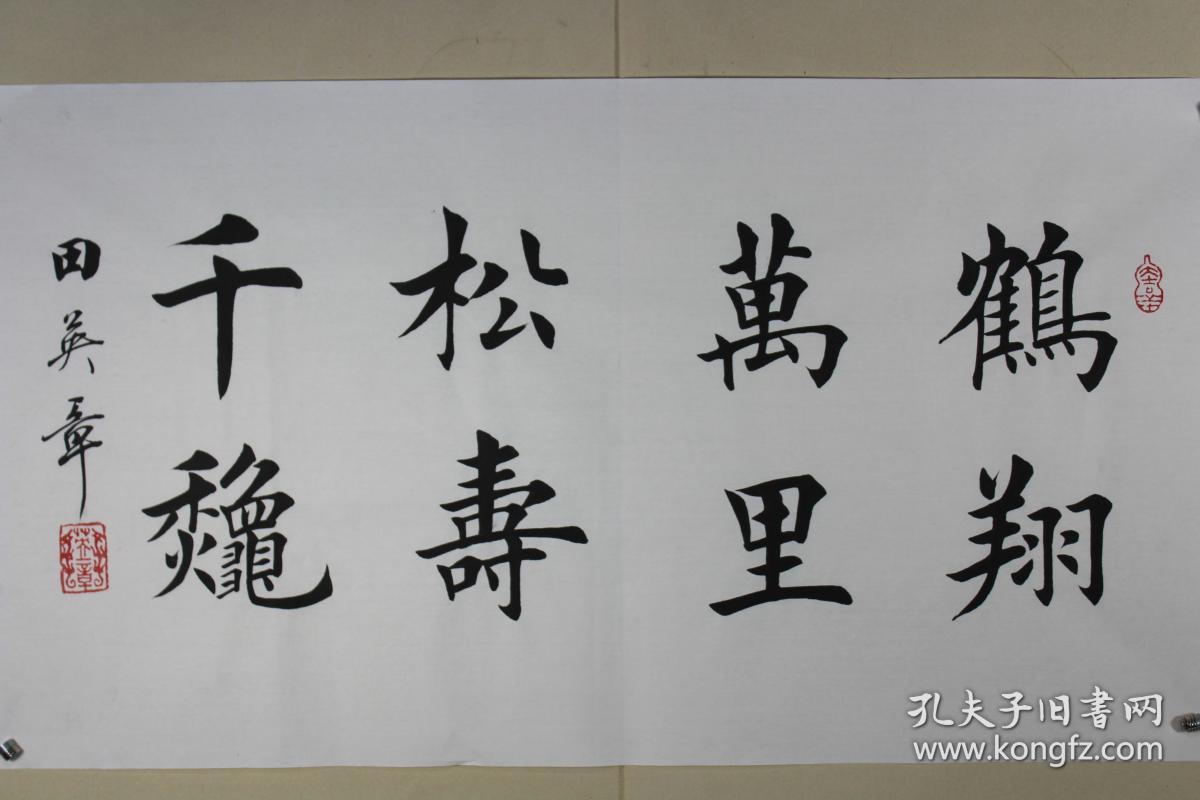 鶴翔
萬里
松壽
千龝
田英章
英章
孔夫子旧書网
www.kongfz.com